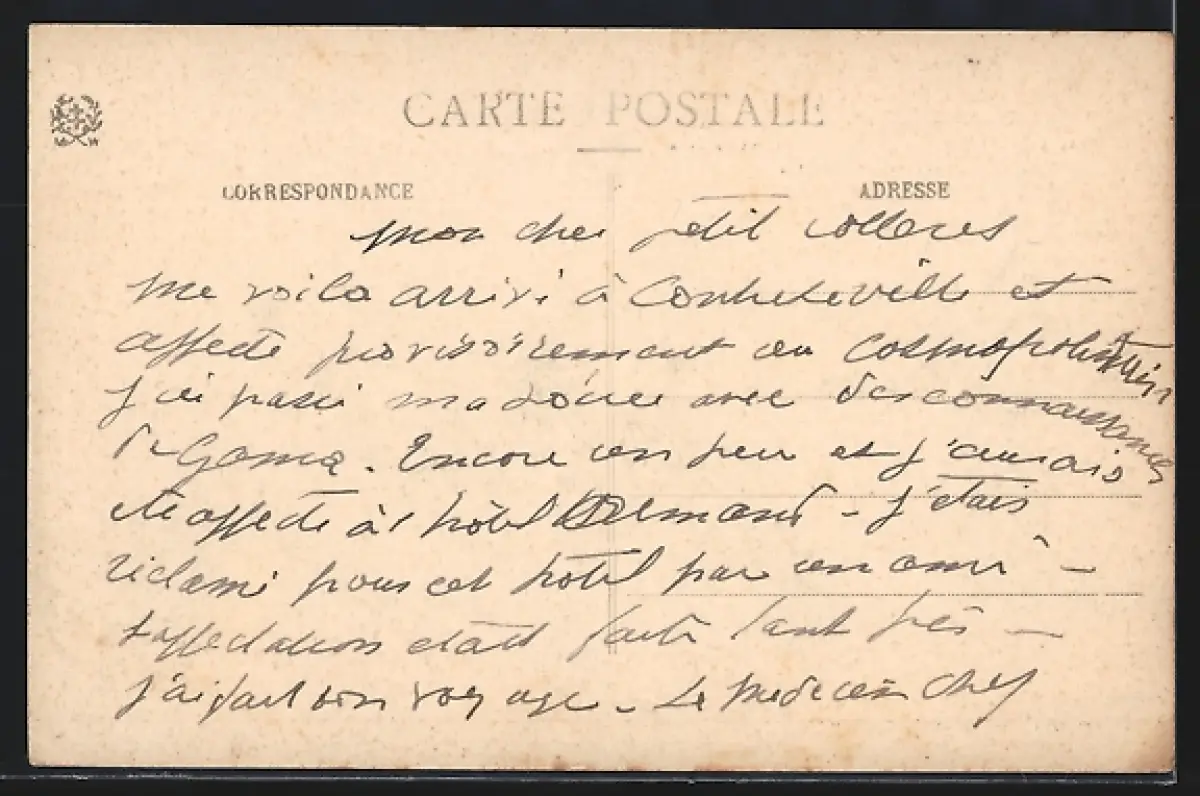 CARTE POSTALE
CORRESPONDANCE
ADRESSE
mon cher petit
me voila arrivé à et
affecté provisoirement au
j'ai passé ma soirée avec des connaissances
de . Encore un peu et j'aurais
été affecté à l'hôtel - j'étais
réclamé pour cet hôtel par un ami -
l'affectation était faite tant pis -
j'ai fait bon voyage. Le médecin chef